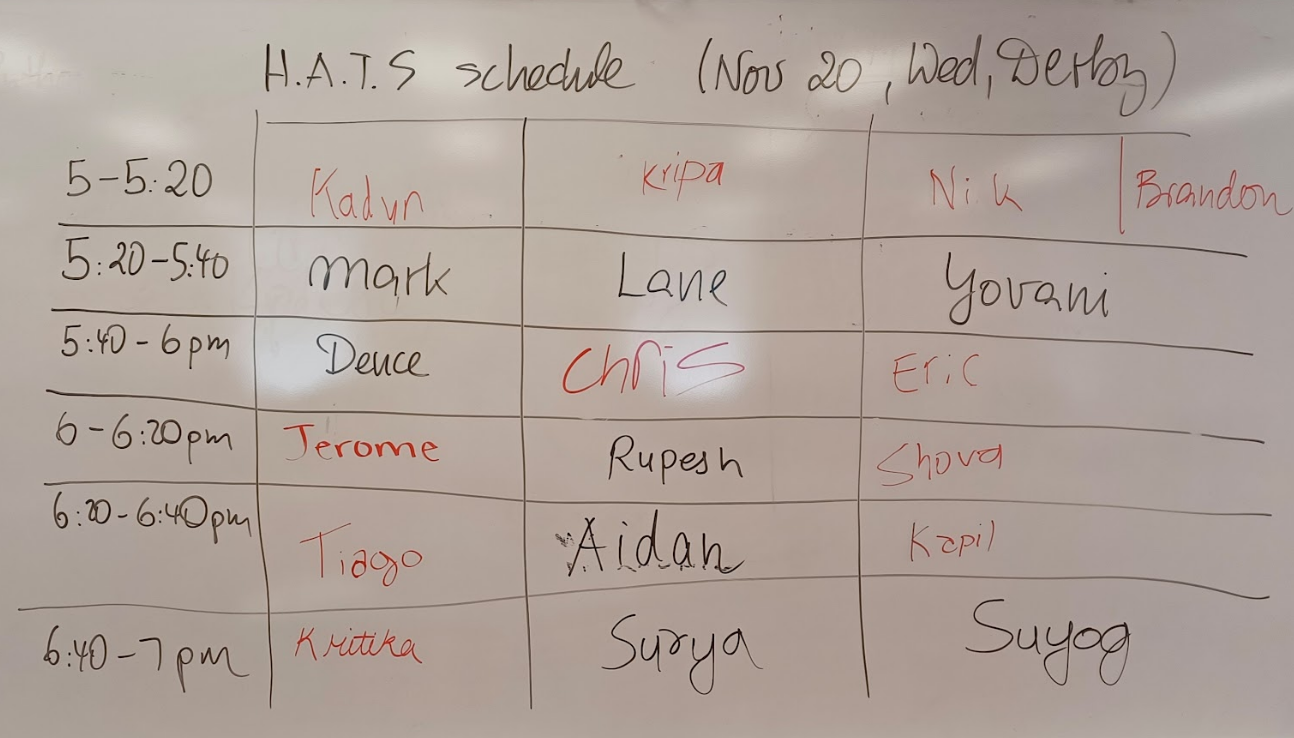 H.A.T.S schedule (Nov 20, Wed, Derby)
5-5:20 Kadyn Kripa Nik Brandon
5:20-5:40 Mark Lane Yovani
5:40-6pm Deuce Chris Eric
6-6:20pm Jerome Rupesh Shova
6:20-6:40pm Tiago Aidan Kapil
6:40-7pm Kritika Surya Suyog